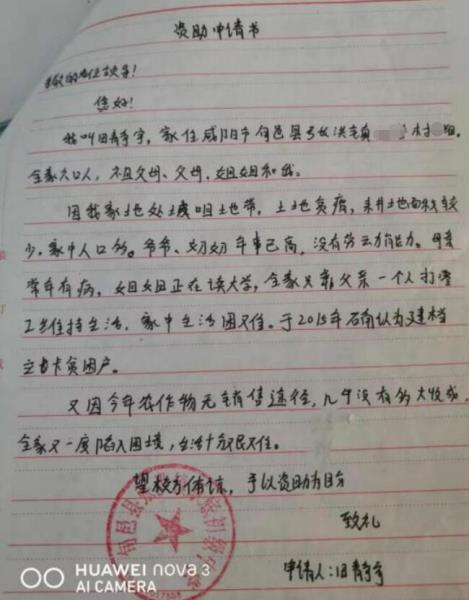 资助申请书
敬的各位领导！
您好！
我叫田静宇，家住咸阳市旬邑县 洪镇 村 组，
全家六口人，祖父母、父母、姐姐和我。
因我家地处 地带，土地贫瘠，耕地面积较
少，家中人口多。爷爷、奶奶年事已高，没有劳动力能力。母亲
常年有病，姐姐正在读大学，全家只靠父亲一个人打零
工维持生活，家中生活困难。于2015年 确认为建档
立卡贫困户。
又因今年农作物无销售途径，几乎没有多大收成，
全家又一度陷入困境，生活十分艰难。
望校方体谅，予以资助为盼
致礼
申请人：田静宇
旬邑县
HUAWEI nova 3
AI CAMERA